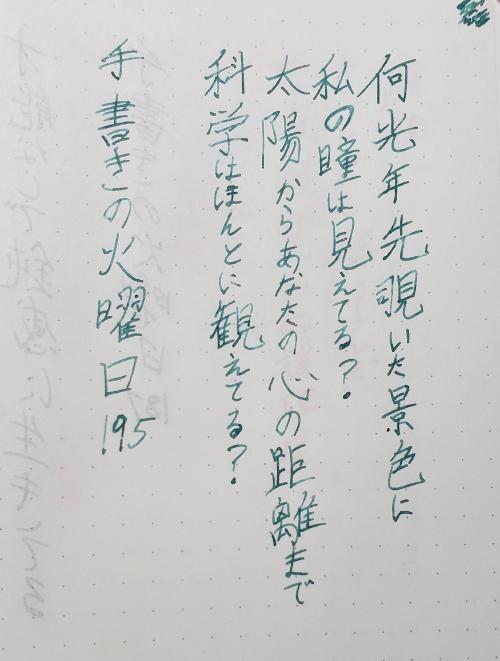 何光年先覗いた景色に
私の瞳は見えてる?
太陽からあなたの心の距離まで
科学はほんとに観えてる?
手書きの火曜日195